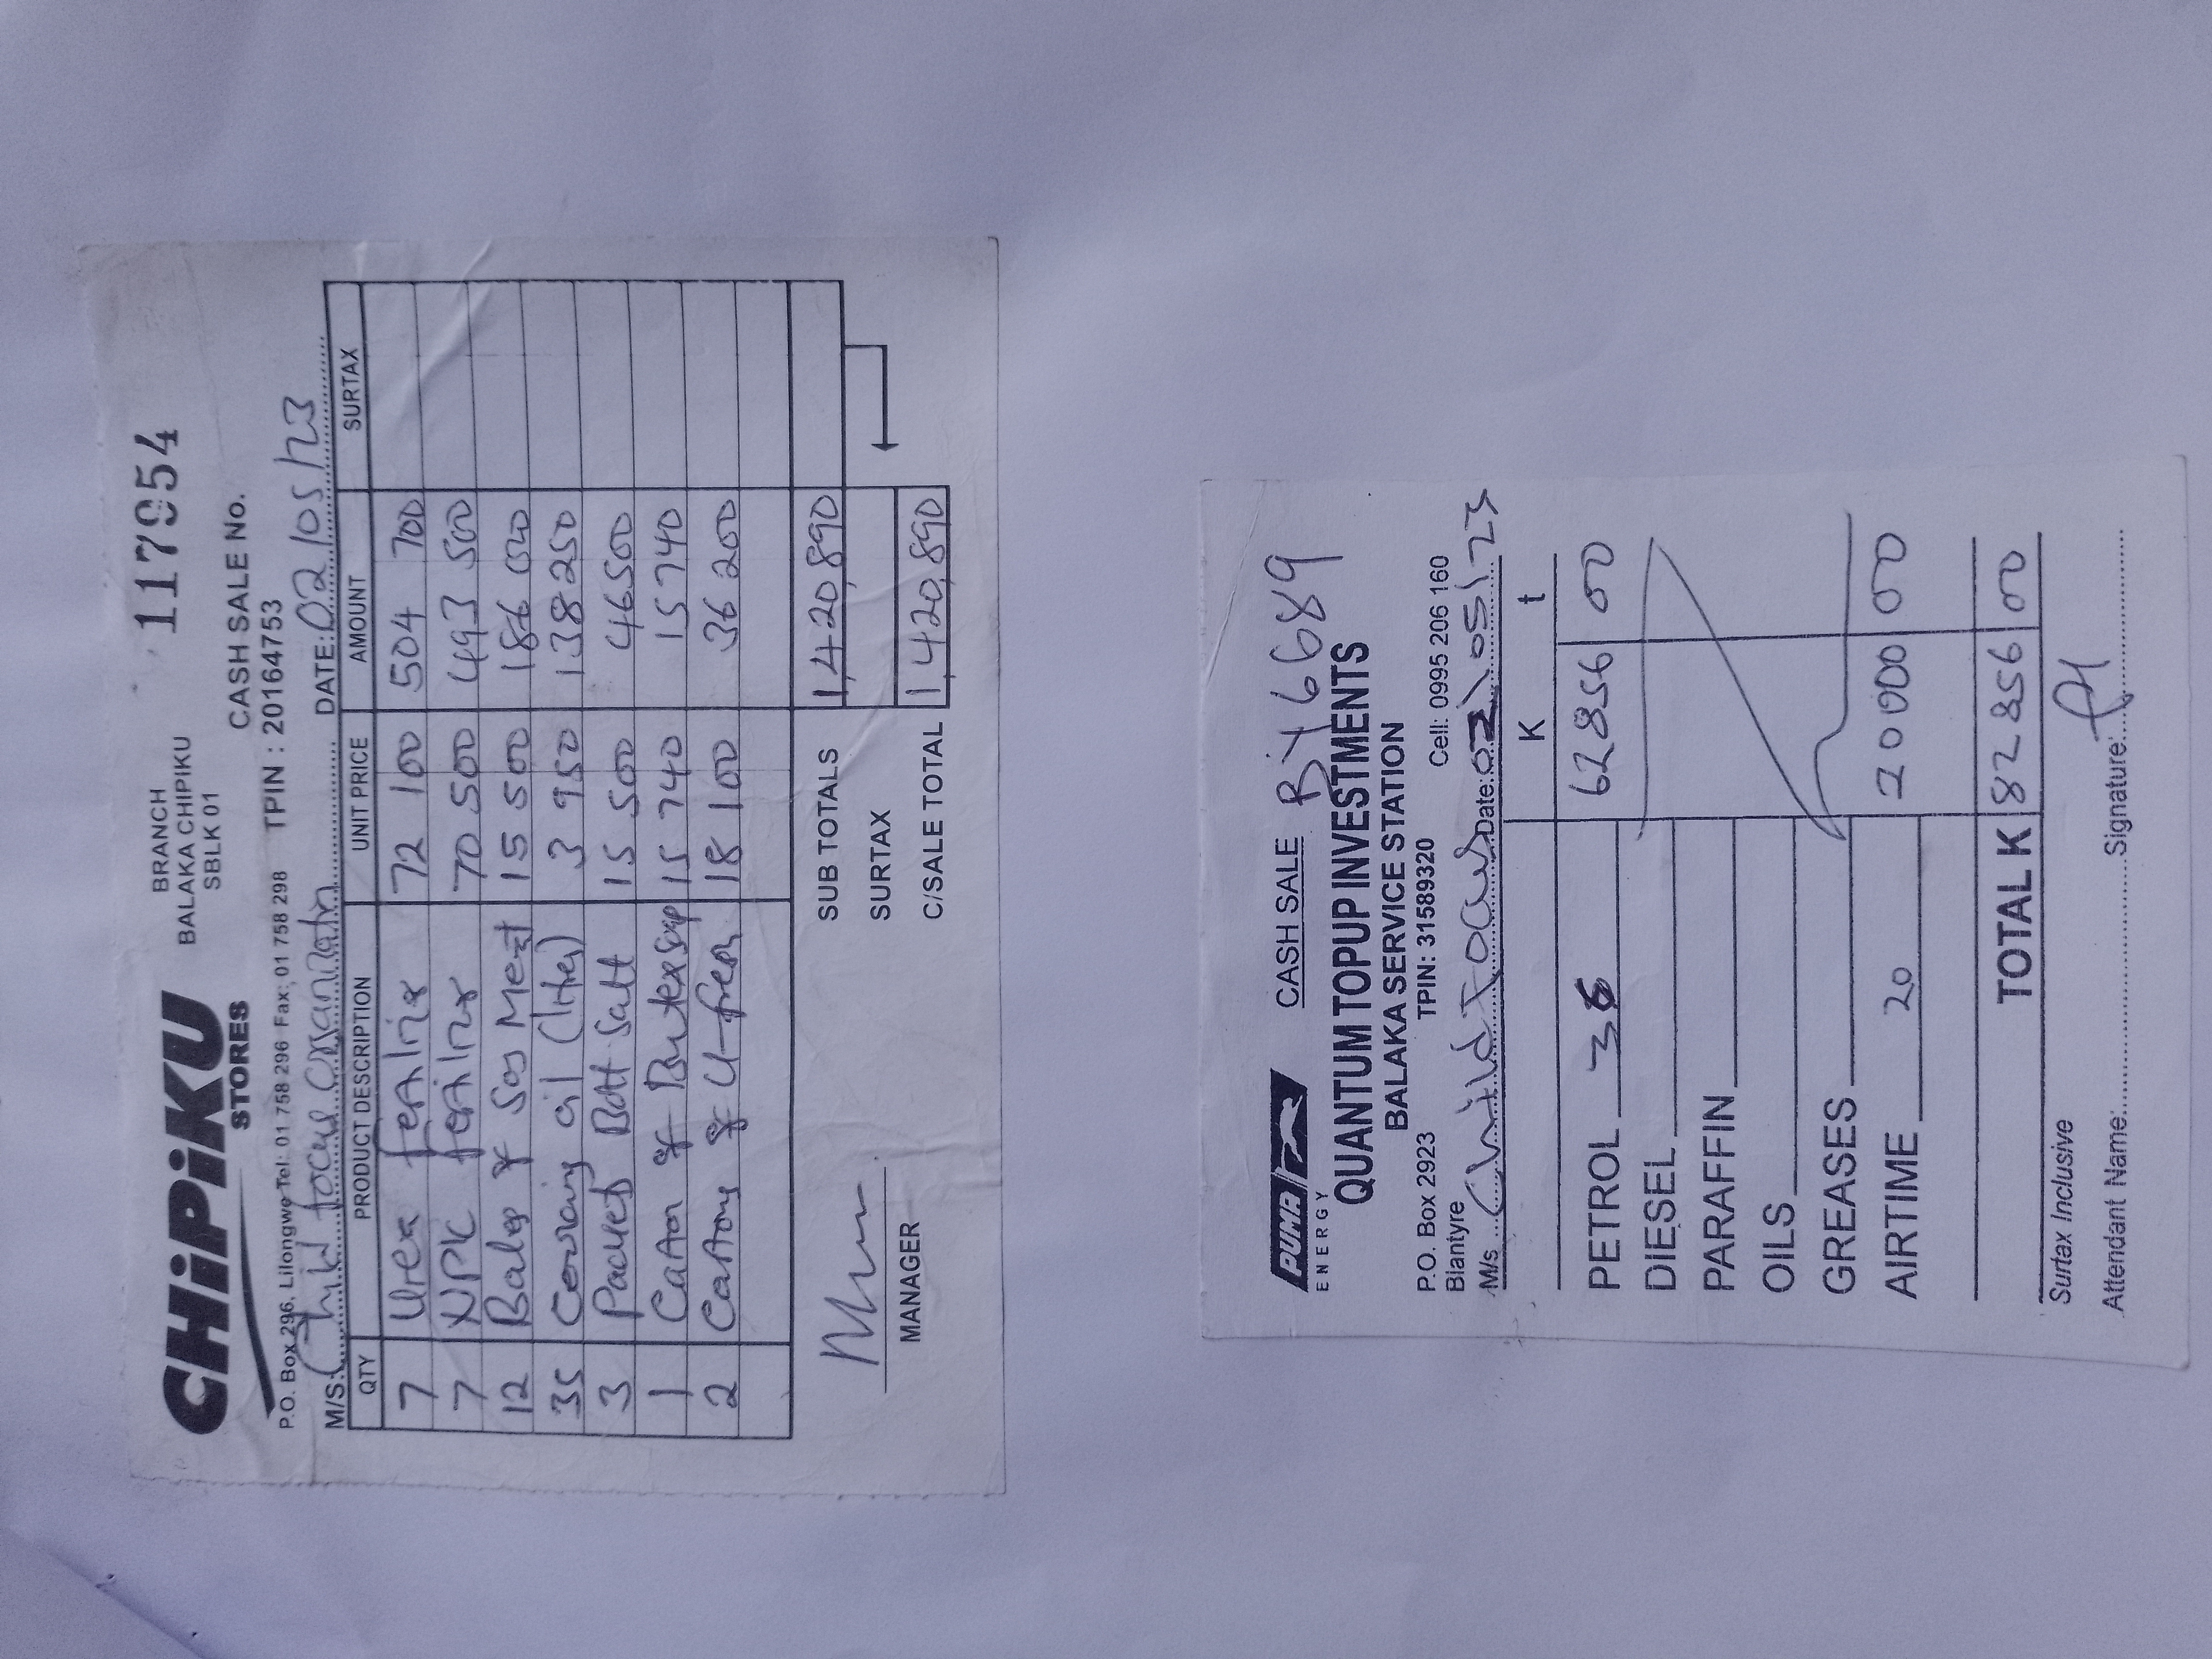 CHiPiKU
STORES
BRANCH
BALAKA CHIPIKU
SBLK 01
117954
CASH SALE No.
P.O. Box 296, Lilongwe Tel: 01 758 296 Fax: 01 758 298 TPIN : 20164753
M/S: Child focus DATE: 02/05/23
QTY PRODUCT DESCRIPTION UNIT PRICE AMOUNT SURTAX
7 Urea 72 100 504 700
7 NPK 70 500 493 500
12 Bales of 15 500 186 000
35 Cooking oil (liter) 3 950 138 250
3 Packets Salt 15 500 46 500
1 Carton of 15 740 15 740
2 Cartons of U-fresh 18 100 36 200
SUB TOTALS 1,420,890
SURTAX
C/SALE TOTAL 1,420,890
MANAGER
PUMA
ENERGY
CASH SALE BY 6689
QUANTUM TOPUP INVESTMENTS
BALAKA SERVICE STATION
P.O. Box 2923 TPIN: 31589320 Cell: 0995 206 160
Blantyre
M/s Child Focus Date: 02/05/23
K t
PETROL 36 62856 00
DIESEL
PARAFFIN
OILS
GREASES
AIRTIME 20 20000 00
TOTAL K 82856 00
Surtax Inclusive
Attendant Name: Signature: